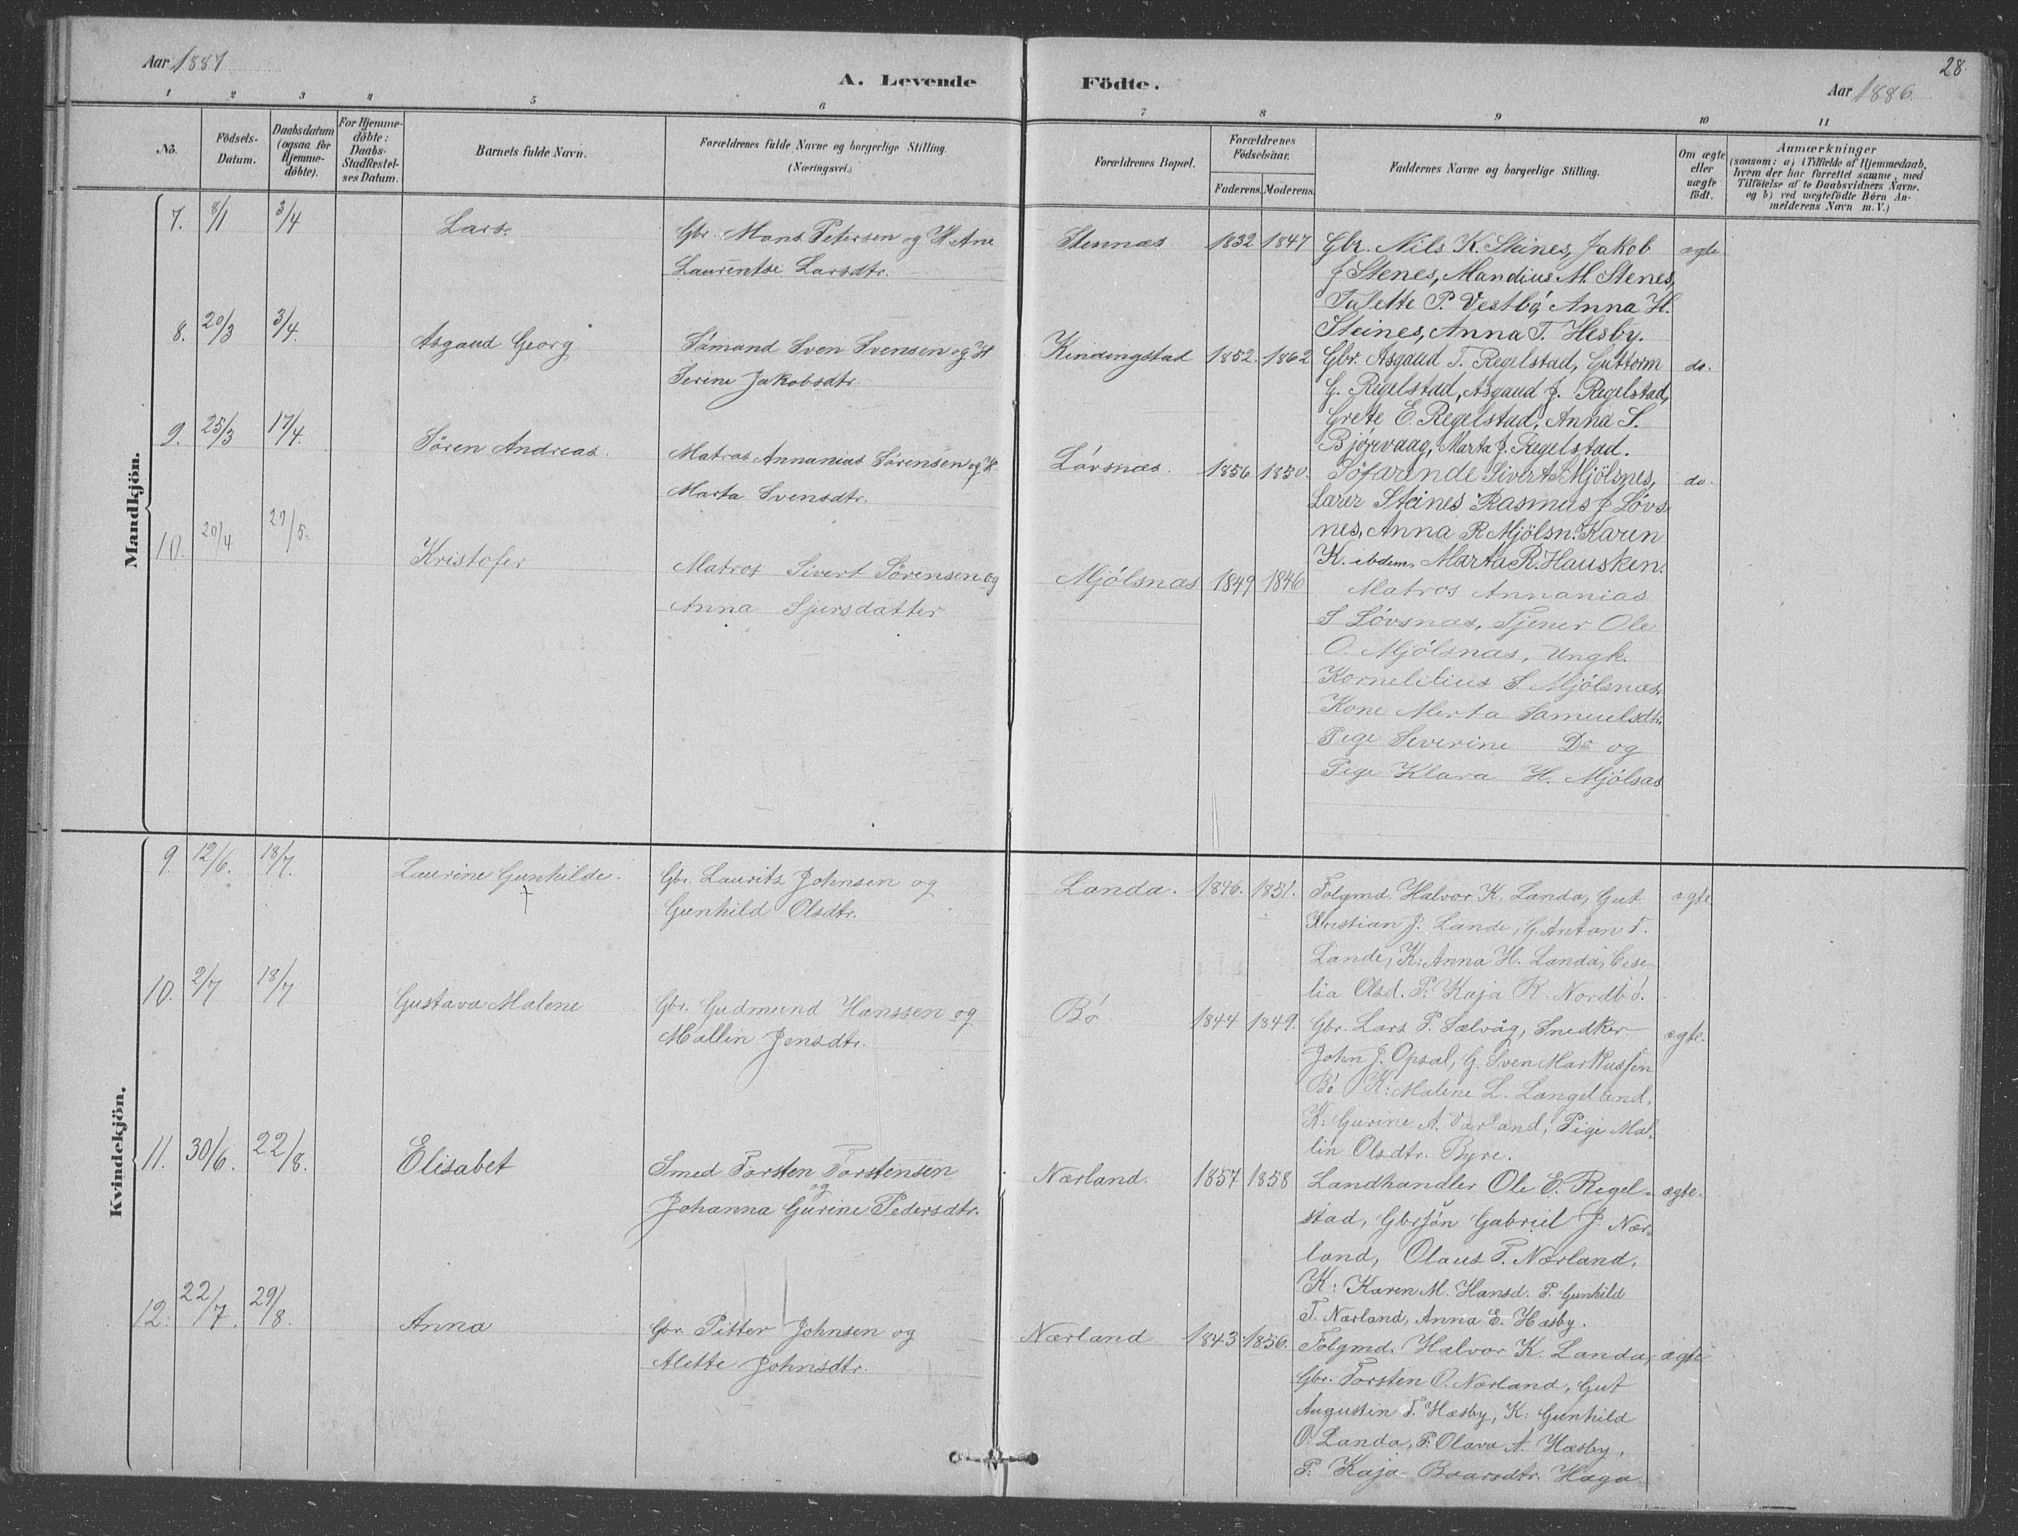 28
Aar 1887
A. Levende Födte.
Aar 1886
1 2 3 4 5 6 7 8 9 10 11
No.
Födsels-Datum.
Daabsdatum (ogsaa for Hjemmedöbte).
For Hjemmedöbte: Daabs-Stadfæstelses Datum.
Barnets fulde Navn.
Forældrenes fulde Navne og borgerlige Stilling. (Næringsvei.)
Forældrenes Bopæl.
Forældrenes Födselsaar.
Faderens. Moderens.
Faddernes Navne og borgerlige Stilling.
Om ægte eller uægte födt.
Anmærkninger
(saasom: a) i Tilfælde af Hjemmedaab, hvem der har forrettet samme, med Tilföielse af to Daabsvidners Navne, og b) ved uægtefödte Börn Anmelderens Navn m. V.)
Mandkjön.
7. 8/1 3/4 Lars.
Gbr. Mons Petersen og H Ane
Laurentse Larsdtr.
Stennæs 1832 1847
Gbr. Nils K. Steines, Jakob
J Stenes, Mandius M. Stenes,
Talette P. Vestbø, Anna H.
Steines, Anna T. Hesby.
ægte
8. 20/3 3/4 Asgaud Georg
Sömand Sven Svensen og H
Serine Jakobsdtr.
Kindingstad 1852. 1862
Gbr. Asgaud T. Regelstad, Guttorm
G. Rigelstad, Asgaud J. Regelstad,
Grete E. Regelstad, Anna S.
Bjørevaag, Marta J. Regelstad.
do.
9. 25/3 17/4. Søren Andreas.
Matros Annanias Sørensen og H
Marta Svensdtr.
Løvsnæs. 1856 1850.
Søfarende Sivert S Mjölsnes,
Larer Steines Rasmus J Løvs
nes, Anna R Mjölsn. Karen
K. ibdem, Marta R. Hausken.
do
10. 20/4 29/5. Kristofer
Matros Sivert Sørensen og
Anna Sjursdatter
Mjölsnas 1849 1846
Matros Annanias
S Løvsnas, Tjener Ole
O. Mjölsnas, Ungk.
Kornelilius S. Mjölsnas.
Kone Merta Samuelsdtr.
Pige Severine Do og
Pige Klara H. Mjölsas
Kvindekjön.
9. 12/6. 18/7. Laurine Gunhilde.
Gbr. Laurits Johnsen og
Gunhild Olsdtr.
Landa. 1846. 1851.
Folgmd. Halvor K. Landa, Gut
Kristian J. Lande, G. Anton T.
Lande, K: Anna H. Landa, Cese
lia Olsd. P. Kaja R. Nordbø.
ægte
10. 2/7 18/7 Gustava Malene
Gbr. Gudmund Hanssen og
Mallin Jensdtr.
Bø 1844 1849.
Gbr. Lars P. Sælvåg, Snedker
John J. Opsal, G. Sven Markussen
Bø K: Malene L. Langeland,
K: Gurine A. Varland, Pige Mal-
lin Olsdtr. Byre.
ægte.
11. 30/6. 22/8. Elisabet
Smed Torsten Torstensen
og
Johanna Gurine Pedersdtr.
Nærland. 1857 1858
Landhandler Ole E. Regel-
stad, Gbrsøn Gabriel J. Nær-
land, Olaus T. Nærland.
K: Karen M. Hansd. P. Gunhild
T. Nærland, Anna E. Hæsby.
ægte.
12. 22/7. 29/8. Anna
Gbr. Pitter Johnsen og
Alette Johnsdtr.
Nærland 1843. 1856.
Folgmd. Halvor K. Landa,
Gbr. Torsten O. Nærland, Gut
Augustin T. Hæsby, K: Gunhild
O. Landa, P. Olava A. Hæsby,
P. Kaja Baarsdtr. Haga.
ægte